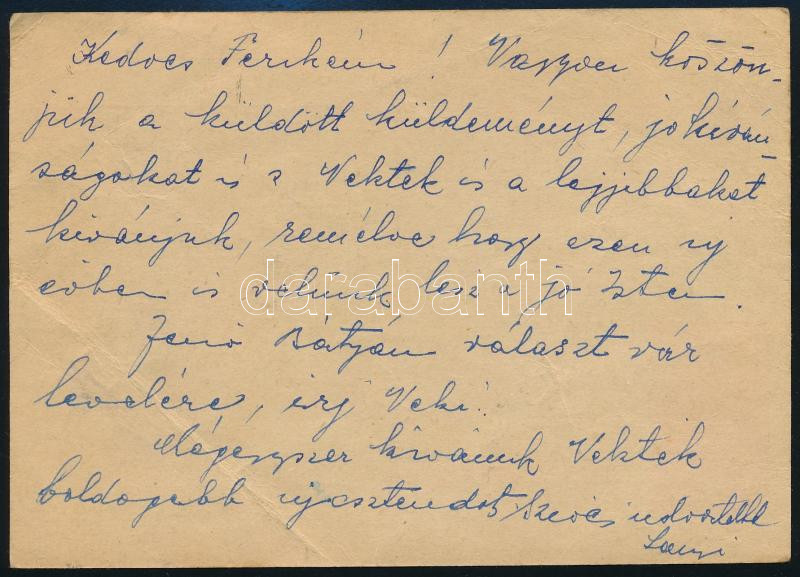 Kedves Ferikém! Nagyon köszön-
jük a küldött küldeményt, jókíván-
ságokat is s Nektek is a legjobbakat
kívánjuk, remélve hogy ezen uj
évben is velünk lesz a jó Isten.
Jenő Bátyán választ vár
levelére, irj Neki!
Mégegyszer kívánunk Nektek
boldogabb ujesztendőt, Szerető üdvözlettel
darabanth